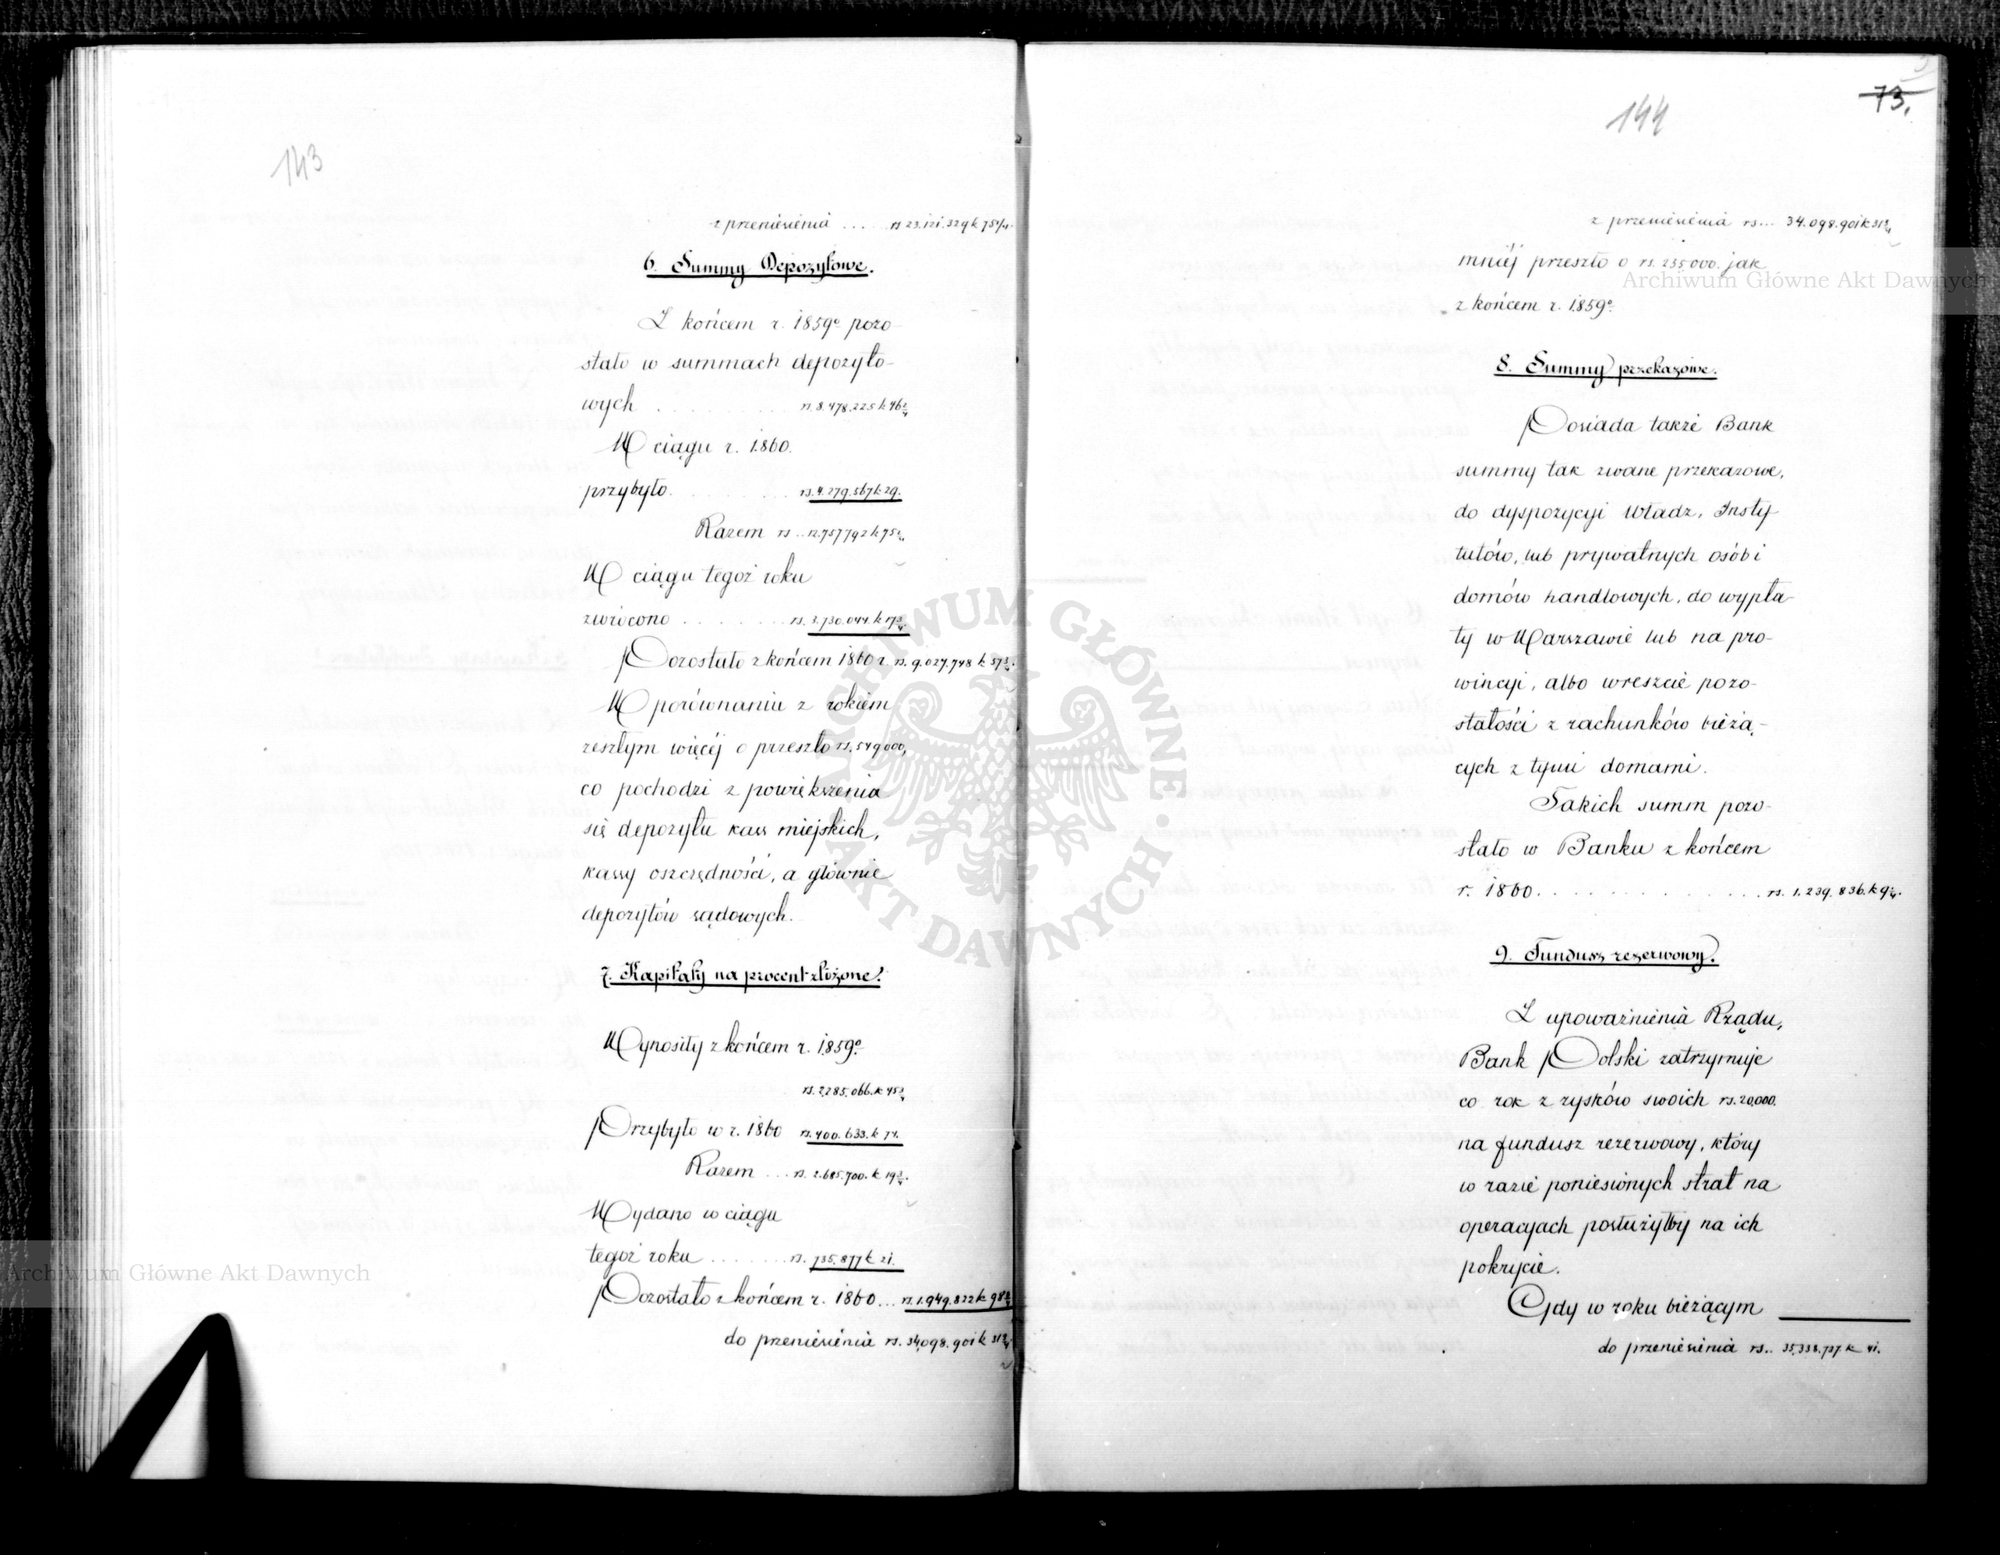 143
z przeniesienia . . . . . rs 23.121.329 k 75 1/4.
6. Summy Depozytowe.
Z końcem r. 1859o pozo-
stało w summach depozyto-
wych . . . . . . . . rs. 8.478.225 k 46 3/4
W ciągu r. 1860.
przybyło. . . . . . . . rs. 4.279.567 k 29.
Razem rs .. 12.757792 k 75 3/4.
W ciągu tegoż roku
zwrócono . . . . . . . rs. 3.730.044. k 17 3/4.
Pozostało z końcem 1860 r. rs. 9.027.748 k 57 3/4.
W porównaniu z rokiem
zeszłym więcéj o przeszło rs. 549000,
co pochodzi z powiększenia
się depozytu kass miejskich,
kassy oszczędności, a głównie
depozytów sądowych.
7. Kapitały na procent złożone!
Wynosiły z końcem r. 1859o
rs. 2.285.066. k 45 3/4
Przybyło w r. 1860 rs. 400.633. k 74.
Razem ... rs. 2.685.700. k 19 3/4.
Wydano w ciągu
tegoż roku . . . . . . . rs. 735.877 k 21.
Pozostało z końcem r. 1860 ... rs. 1.949.822 k 98 3/4
do przeniesienia rs. 34.098.901 k 31 3/4
73.
144
z przeniesienia rs... 34.098.901 k 31 3/4
mniéj przeszło o rs. 235,000. jak
z końcem r. 1859o
8. Summy przekazowe.
Posiada także Bank
summy tak zwane przekazowe,
do dyspozycyi Władz, Insty
tutów, lub prywatnych osób i
domów handlowych, do wypła-
ty w Warszawie lub na pro-
wincyi, albo wreszcie pozo-
stałości z rachunków bieżą-
cych z tymi domami.
Takich summ pozo-
stało w Banku z końcem
r. 1860. . . . . . . . . . . . . . rs. 1.239.836. k 9 1/4.
9. Fundusz rezerwowy.
Z upoważnienia Rządu,
Bank Polski zatrzymuje
co rok z zysków swoich rs. 20,000.
na fundusz rezerwowy, który
w razie poniesionych strat na
operacyjach posłużyłby na ich
pokrycie.
Gdy w roku bieżącym
do przeniesienia rs.. 35.338.737. k 41.
Archiwum Główne Akt Dawnych
Archiwum Główne Akt Dawnych
ARCHIWUM GŁÓWNE AKT DAWNYCH